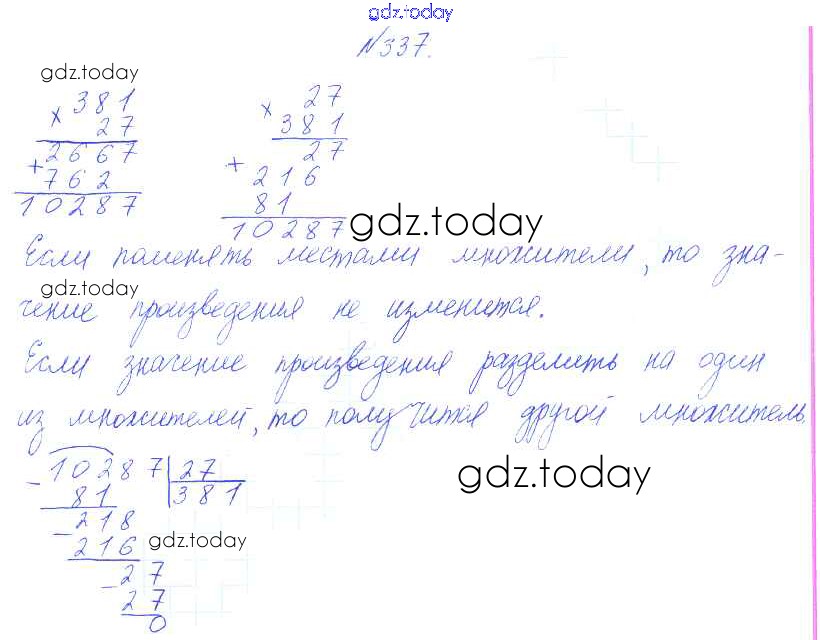 gdz.today
№337.
gdz.today
× 381
27
+ 2667
762
10287
× 27
381
+ 27
216
81
10287
gdz.today
Если поменять местами множители, то зна-
gdz.today
чение произведения не изменится.
Если значение произведения разделить на один
из множителей, то получится другой множитель.
- 10287 | 27
81 381
gdz.today
- 218
216
gdz.today
- 27
27
0